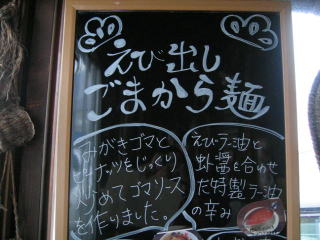 えび出し
ごまから麺
みがきゴマと
ピーナッツをじっくり
炒めてゴマソース
を作りました。
えびラー油と
蝦醤を合わせ
た特製ラー油
の辛み